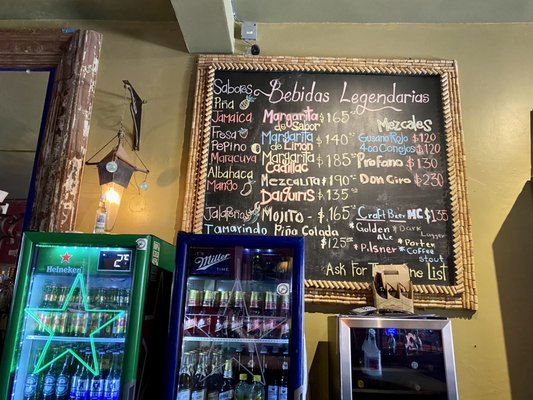 Bebidas Legendarias
Sabores
Piña
Jamaica
Fresa
Pepino
Maracuya
Albahaca
Mango
Jalapeño
Tamarindo
Margarita $165
de Sabor
Margarita $140
de Limon
Margarita $185
Cadillac
Mezcalita $190
Daiquiri
$135
Mojito $165
Piña Colada
$125
Mezcales
Gusano Rojo $120
400 Conejos $120
Profano $130
Don Ciro $230
Craft Beer MC $135
*Golden Ale
*Dark Lager
*Pilsner
*Porter
*Coffee Stout
Ask For The Wine List
Heineken
2°
Miller